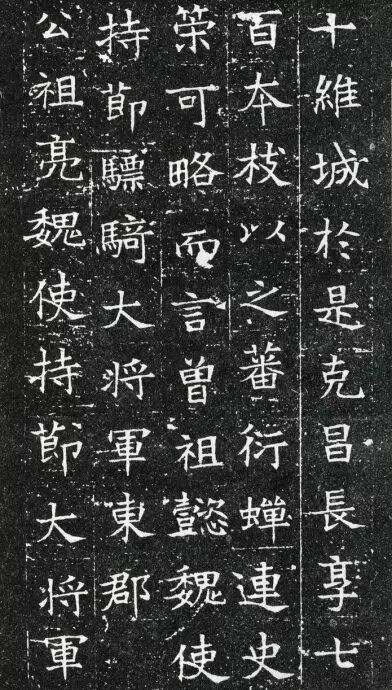 十維城於是克昌長享七
百夲枝以之蕃衍蟬連史
策可略而言曽祖懿魏使
持節驃騎大将軍東郡
公祖亮魏使持節大将軍